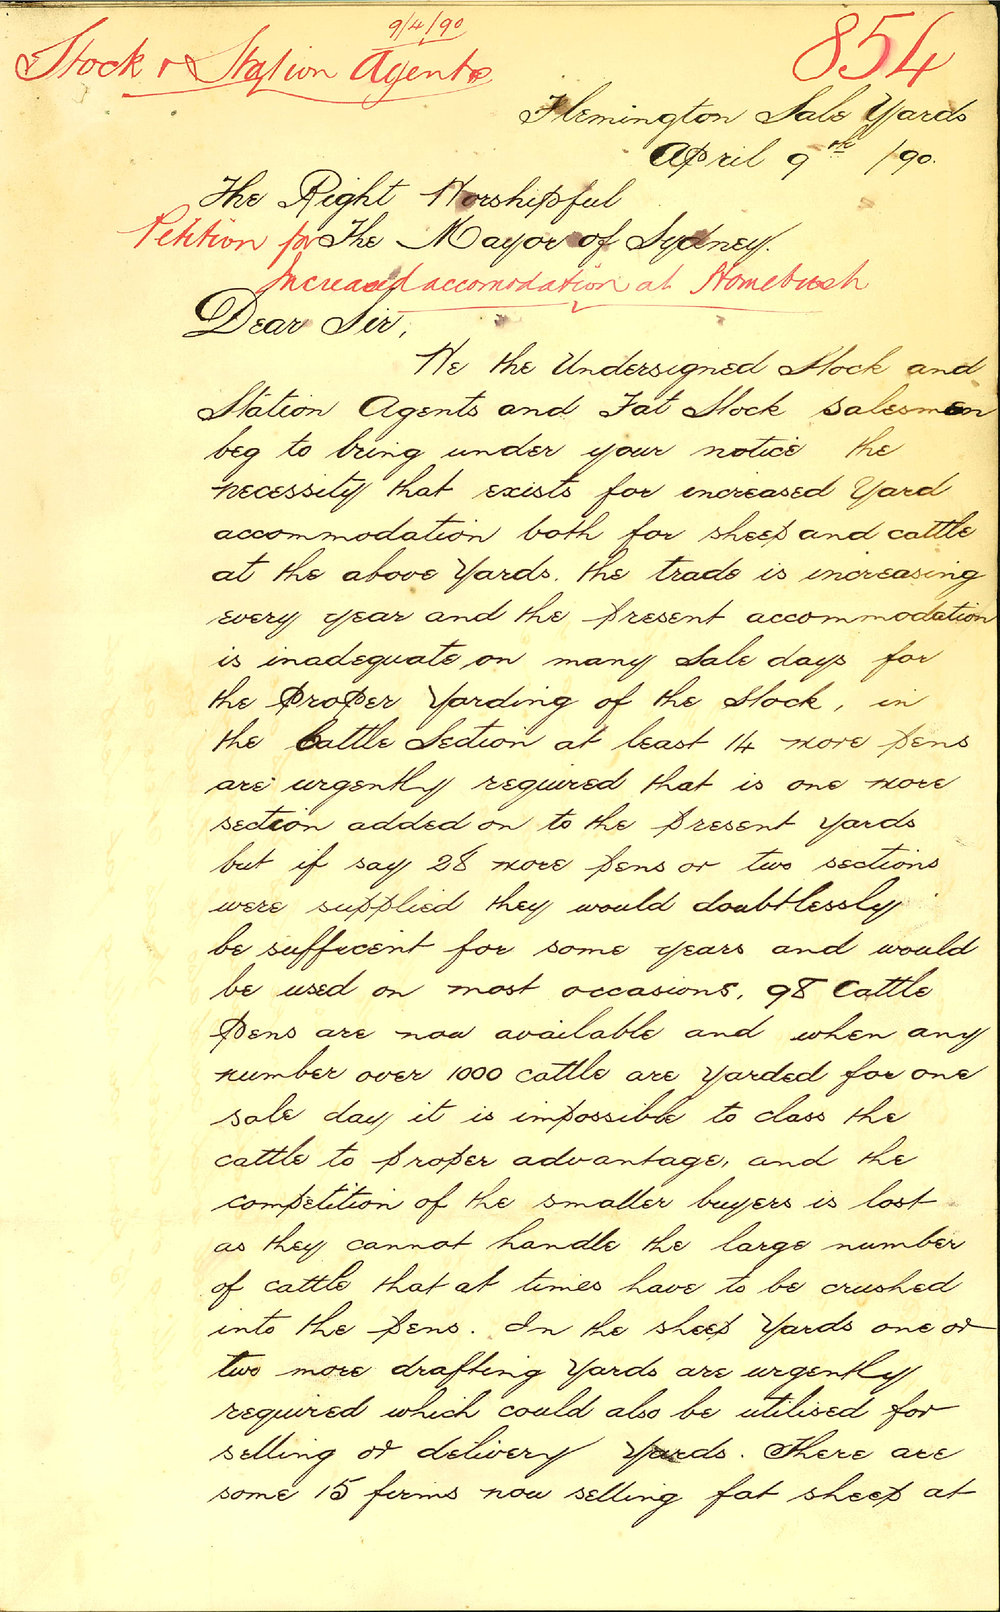 9/4/90
Stock & Station Agents
854
Flemington Sale Yards
April 9th /90.
The Right Worshipful
Petition for
The Mayor of Sydney.
Increased accomodation at Homebush
Dear Sir,
We the Undersigned Stock and
Station Agents and Fat Stock Salesmen
beg to bring under your notice the
necessity that exists for increased Yard
accommodation both for sheep and cattle
at the above Yards. the trade is increasing
every year and the present accommodation
is inadequate on many Sale days for
the Proper Yarding of the Stock, in
the Cattle Section at least 14 more pens
are urgently required that is one more
section added on to the present Yards
but if say 28 more pens or two sections
were supplied they would doubtlessly
be sufficent for some years and would
be used on most occasions. 98 Cattle
Pens are now available and when any
number over 1000 cattle are Yarded for one
sale day it is impossible to class the
cattle to proper advantage, and the
competition of the smaller buyers is lost
as they cannot handle the large number
of cattle that at times have to be crushed
into the pens. In the sheep Yards one or
two more drafting Yards are urgently
required which could also be utilised for
selling or delivery Yards. There are
some 15 firms now selling fat sheep at